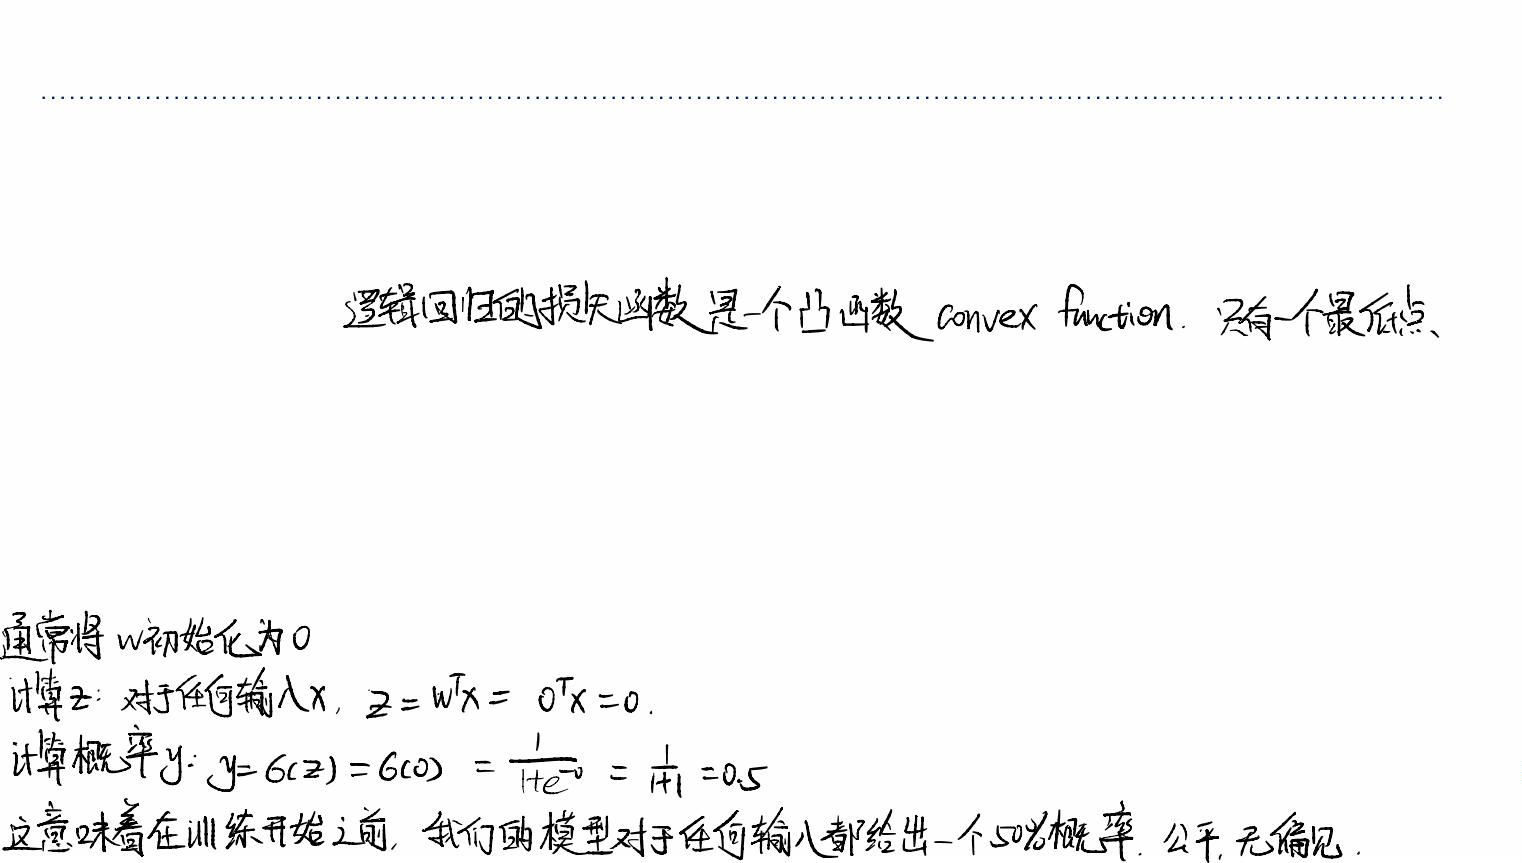 逻辑回归的损失函数是一个凸函数 convex function. 只有一个最低点、
通常将 w初始化为0
计算z: 对于任何输入x, z = wᵀx = 0ᵀx = 0.
计算概率y: y = 6(z) = 6(0) = 1/(1+e⁻⁰) = 1/(1+1) = 0.5
这意味着在训练开始之前, 我们的模型对于任何输入都给出一个50%概率. 公平, 无偏见.